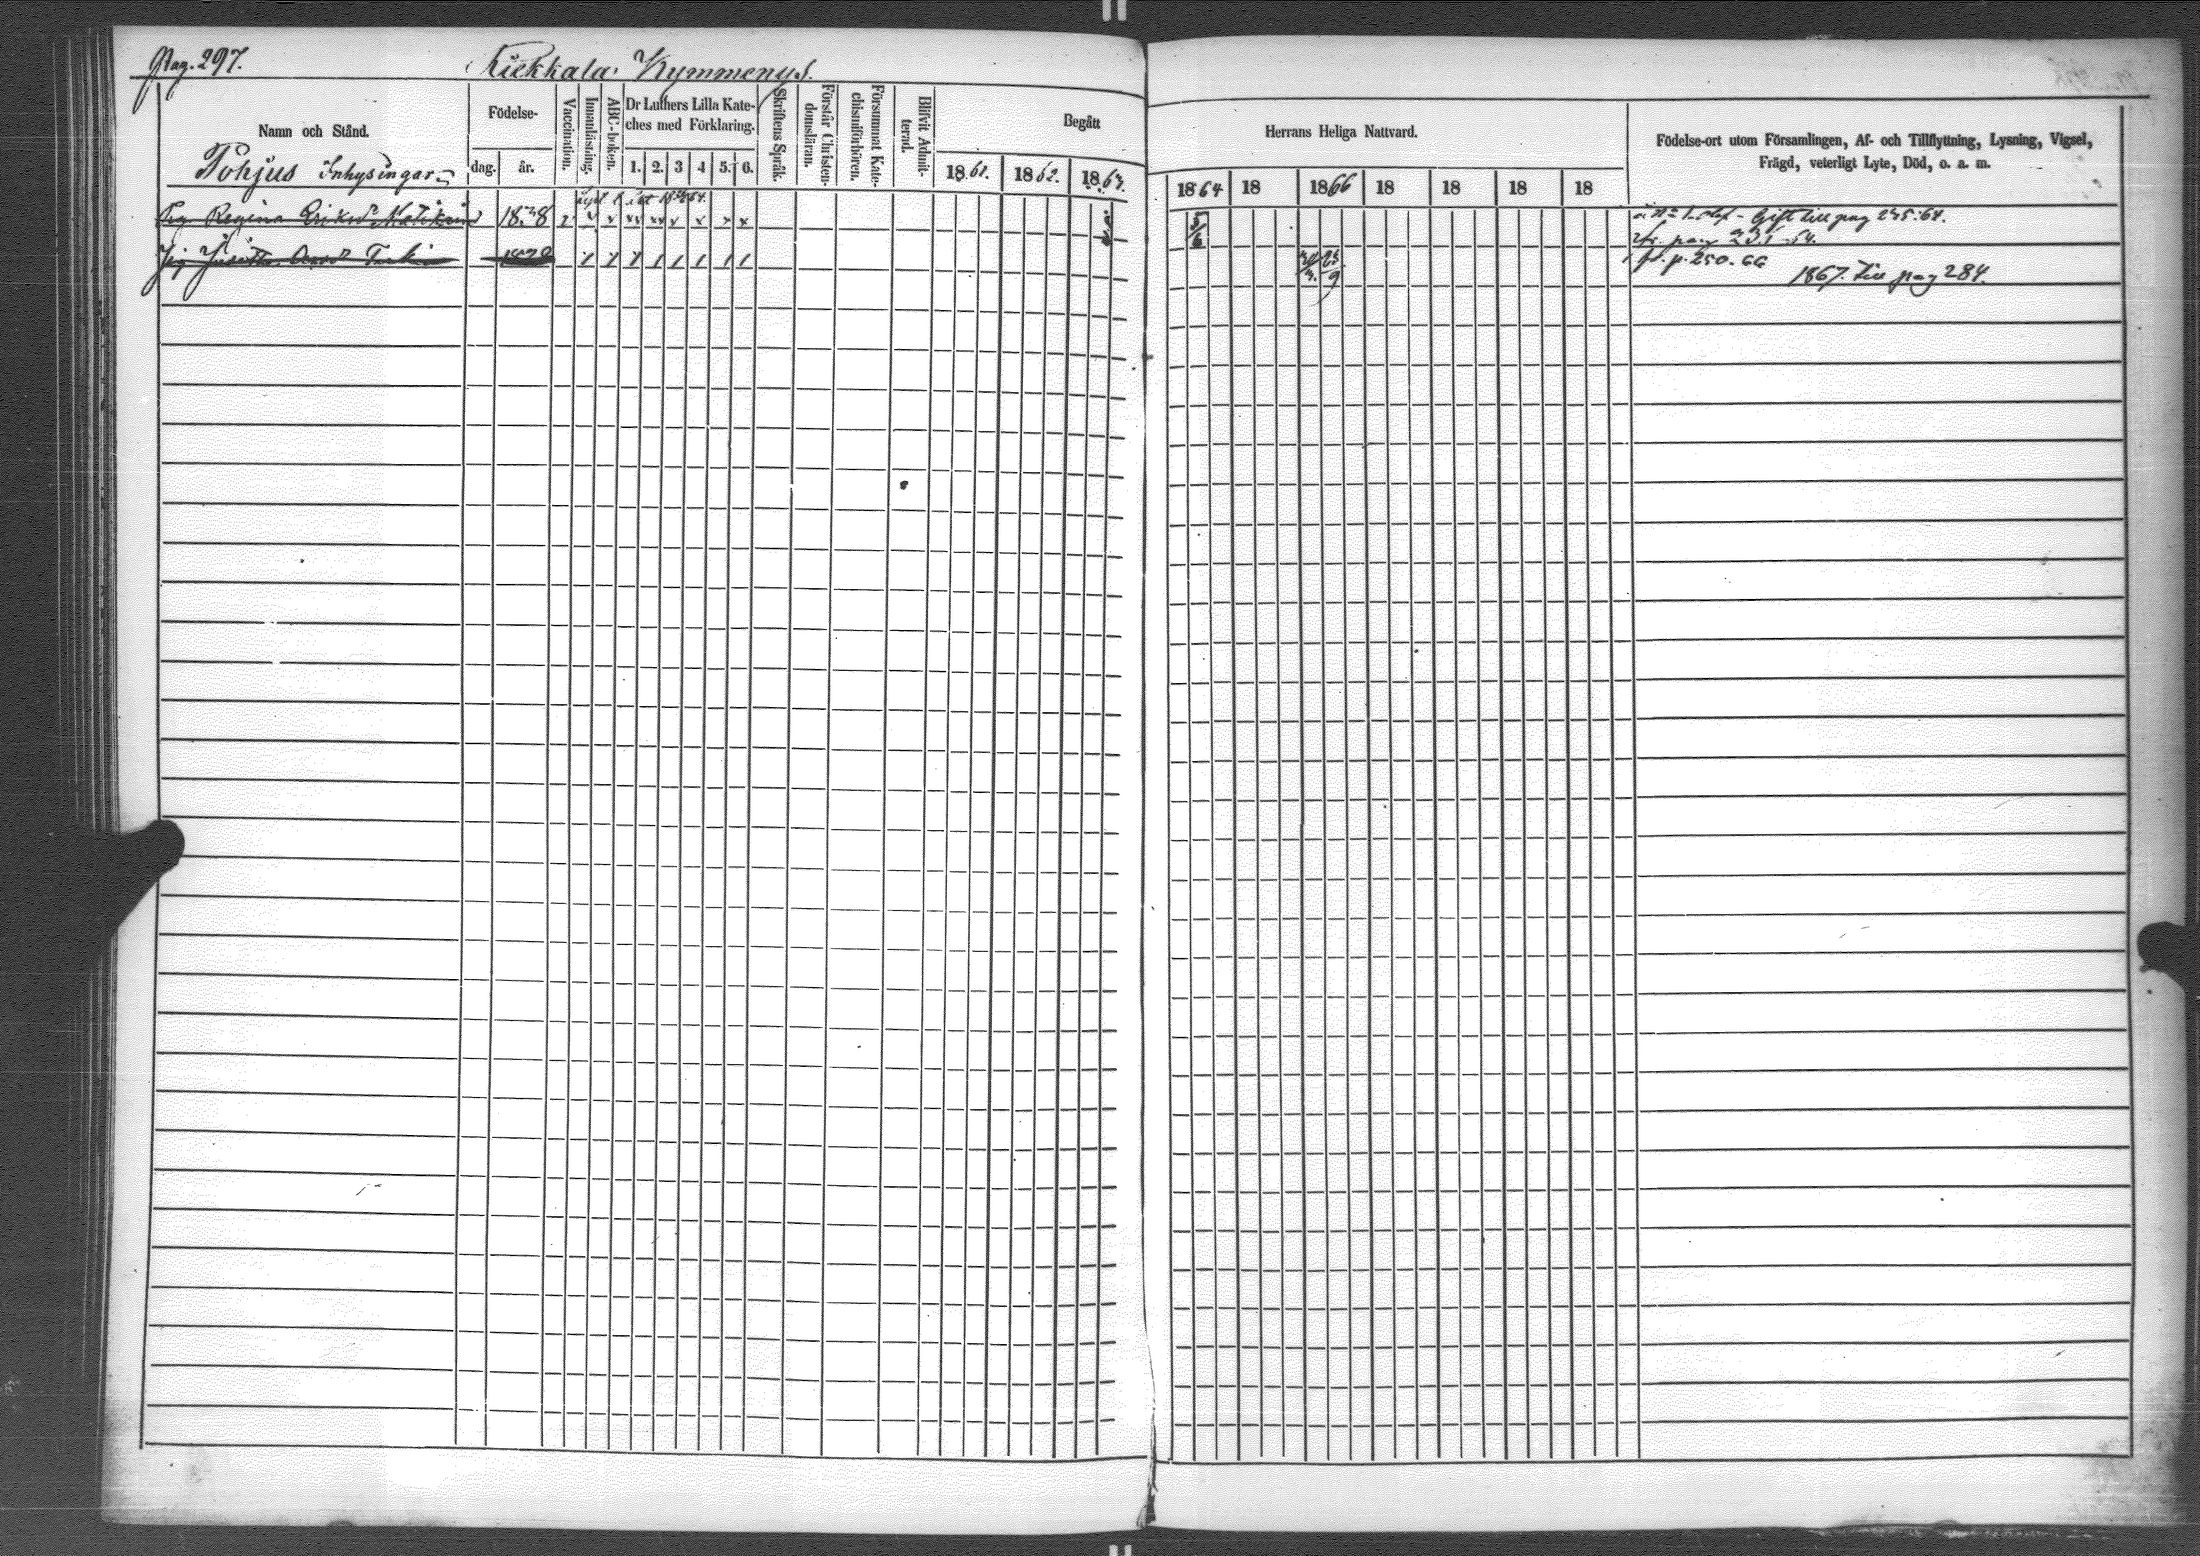 Pag. 297.
Kiekkala Kymmenys.
Namn och Stånd.
Födelse-
dag. år.
Vaccination.
Innanläsning.
ABC-boken.
Dr Luthers Lilla Kate-
ches med Förklaring.
1. 2. 3 4 5. 6.
Skriftens Språk.
Förstår Christen-
domsläran.
Försummat Kate-
chismiförhören.
Blifvit Admit-
terad.
Begått
1861. 1862. 1863.
Herrans Heliga Nattvard.
1864 18 1866 18 18 18 18
Födelse-ort utom Församlingen, Af- och Tillflyttning, Lysning, Vigsel,
Frägd, veterligt Lyte, Död, o. a. m.
Pohjus Inhysingar
Pig. Regina Eriksdr 1838
5/6
Gift till pag 245.64.
pag 231-64.
Pig
23/9
p. 250. 66
1867. till pag 284.